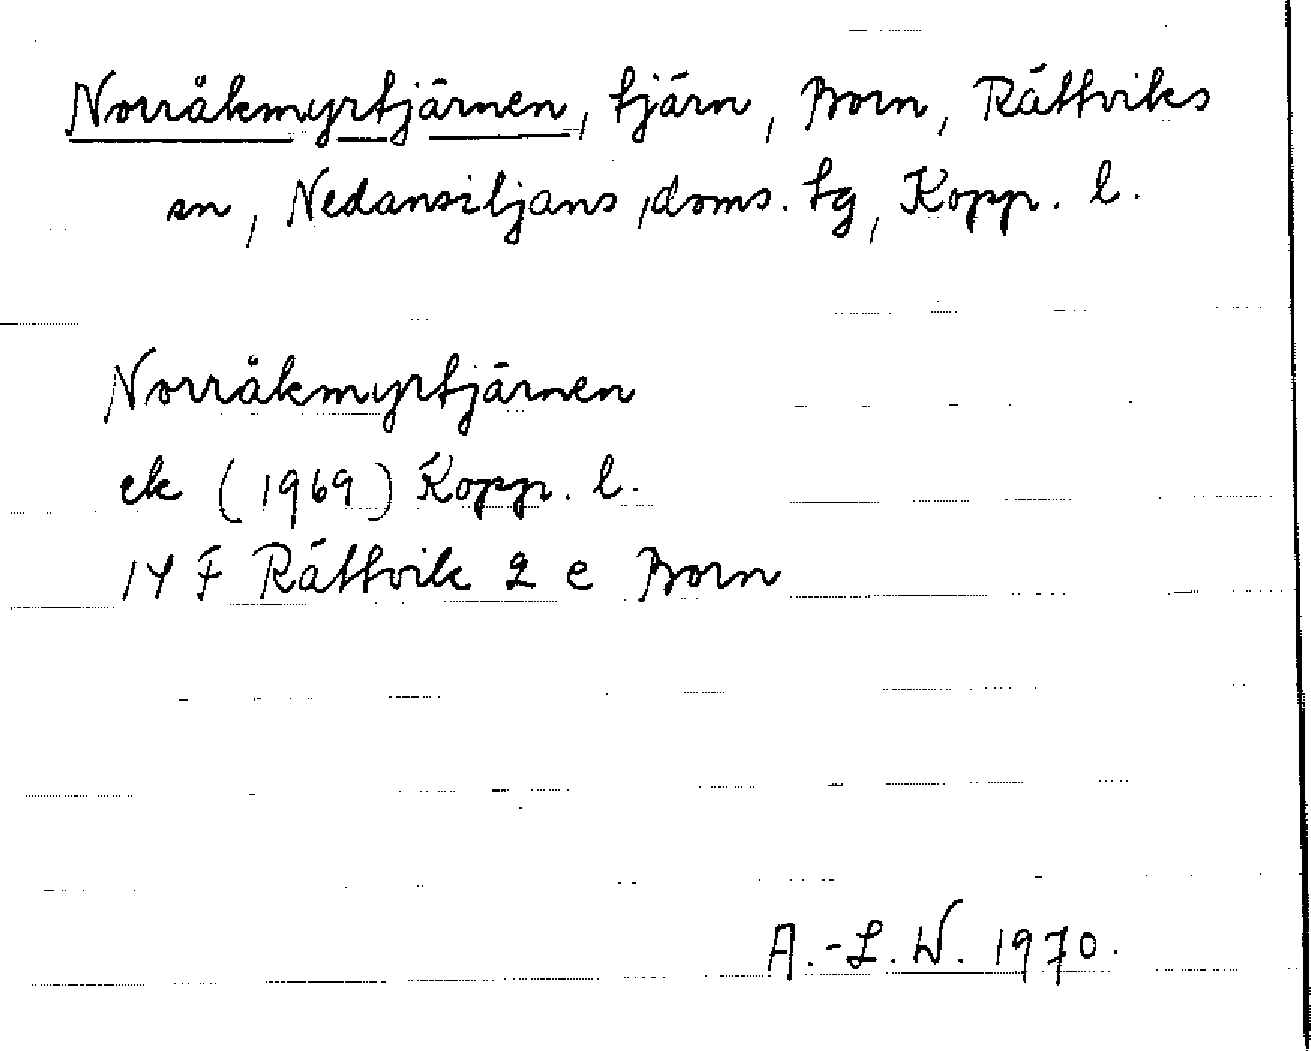 Norråkmyrtjärnen, tjärn, Born, Rättviks
sn, Nedansiljans doms. tg, Kopp. l.
Norråkmyrtjärnen
ek (1969) Kopp. l.
14 F Rättvik 2 e Born
A.-L. W. 1970.